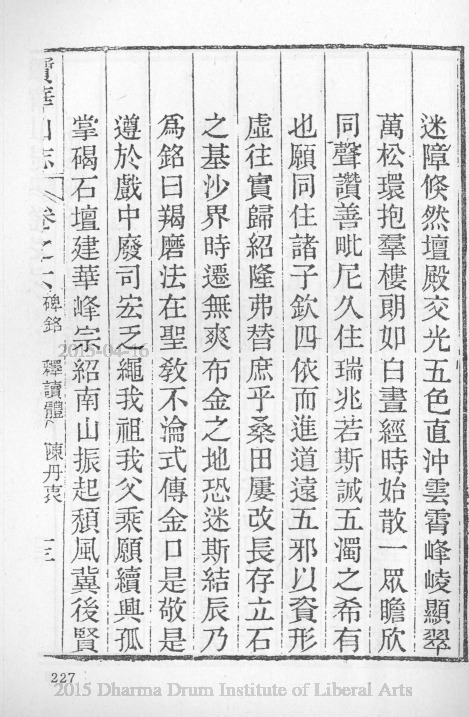 迷障倐然壇殿交光五色直沖雲霄峰崚顯翠
萬松環抱羣樓朗如白晝經時始散一眾瞻欣
同聲讚善毗尼久住瑞兆若斯誠五濁之希有
也願同住諸子欽四依而進道遠五邪以資形
虛往實歸紹隆弗替庶乎桑田屢改長存立石
之基沙界時遷無爽布金之地恐迷斯結辰乃
為銘曰羯磨法在聖教不淪式傳金口是敬是
遵於戲中廢司宏乏繩我祖我父乘願續興孤
掌碣石壇建華峰宗紹南山振起頹風冀後賢
寶華山志 卷之六 碑銘 釋讀體 陳丹衷 一三
2015-04-16
227
2015 Dharma Drum Institute of Liberal Arts